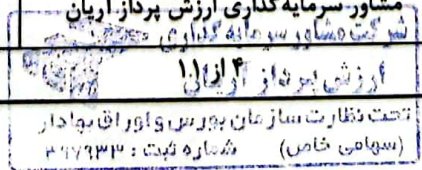 مشاور سرمایه گذاری ارزش پرداز آریان
شرکت مشاور سرمایه گذاری
ارزش پرداز آریان
۴ از ۱۱
تحت نظارت سازمان بورس و اوراق بهادار
(سهامی خاص) شماره ثبت: